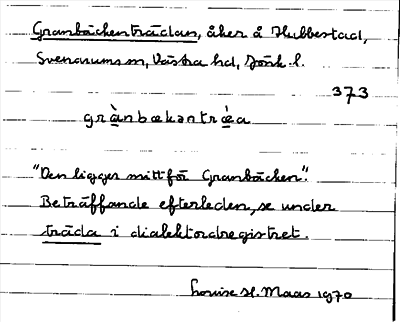 Granbäckenträdan, åker å Hubbestad,
Svenarums sn, Västra hd, Jönk. l.
373
grànbækəntrɛ̀a
"Den ligger mitt för Granbäcken".
Beträffande efterleden, se under
träda i dialektordregistret.
Louise H. Maas 1970